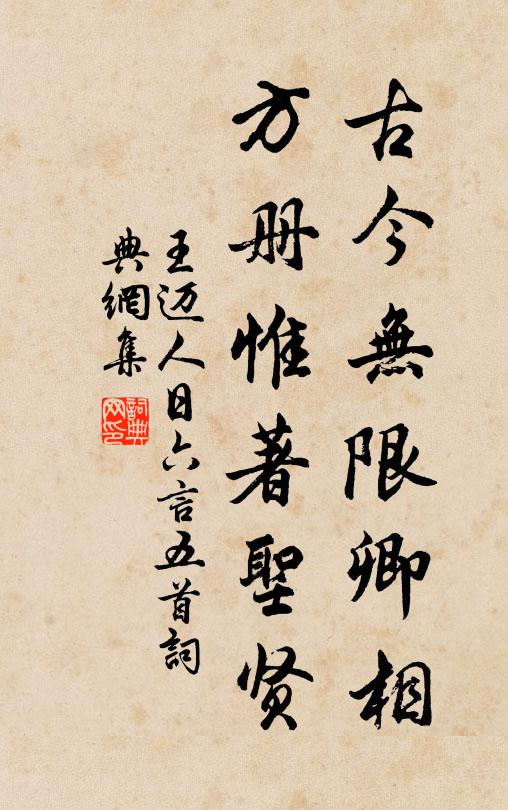 古今無限卿相
方册惟著聖贤
王迈人日六言五首詞
典網集
詞典
网印